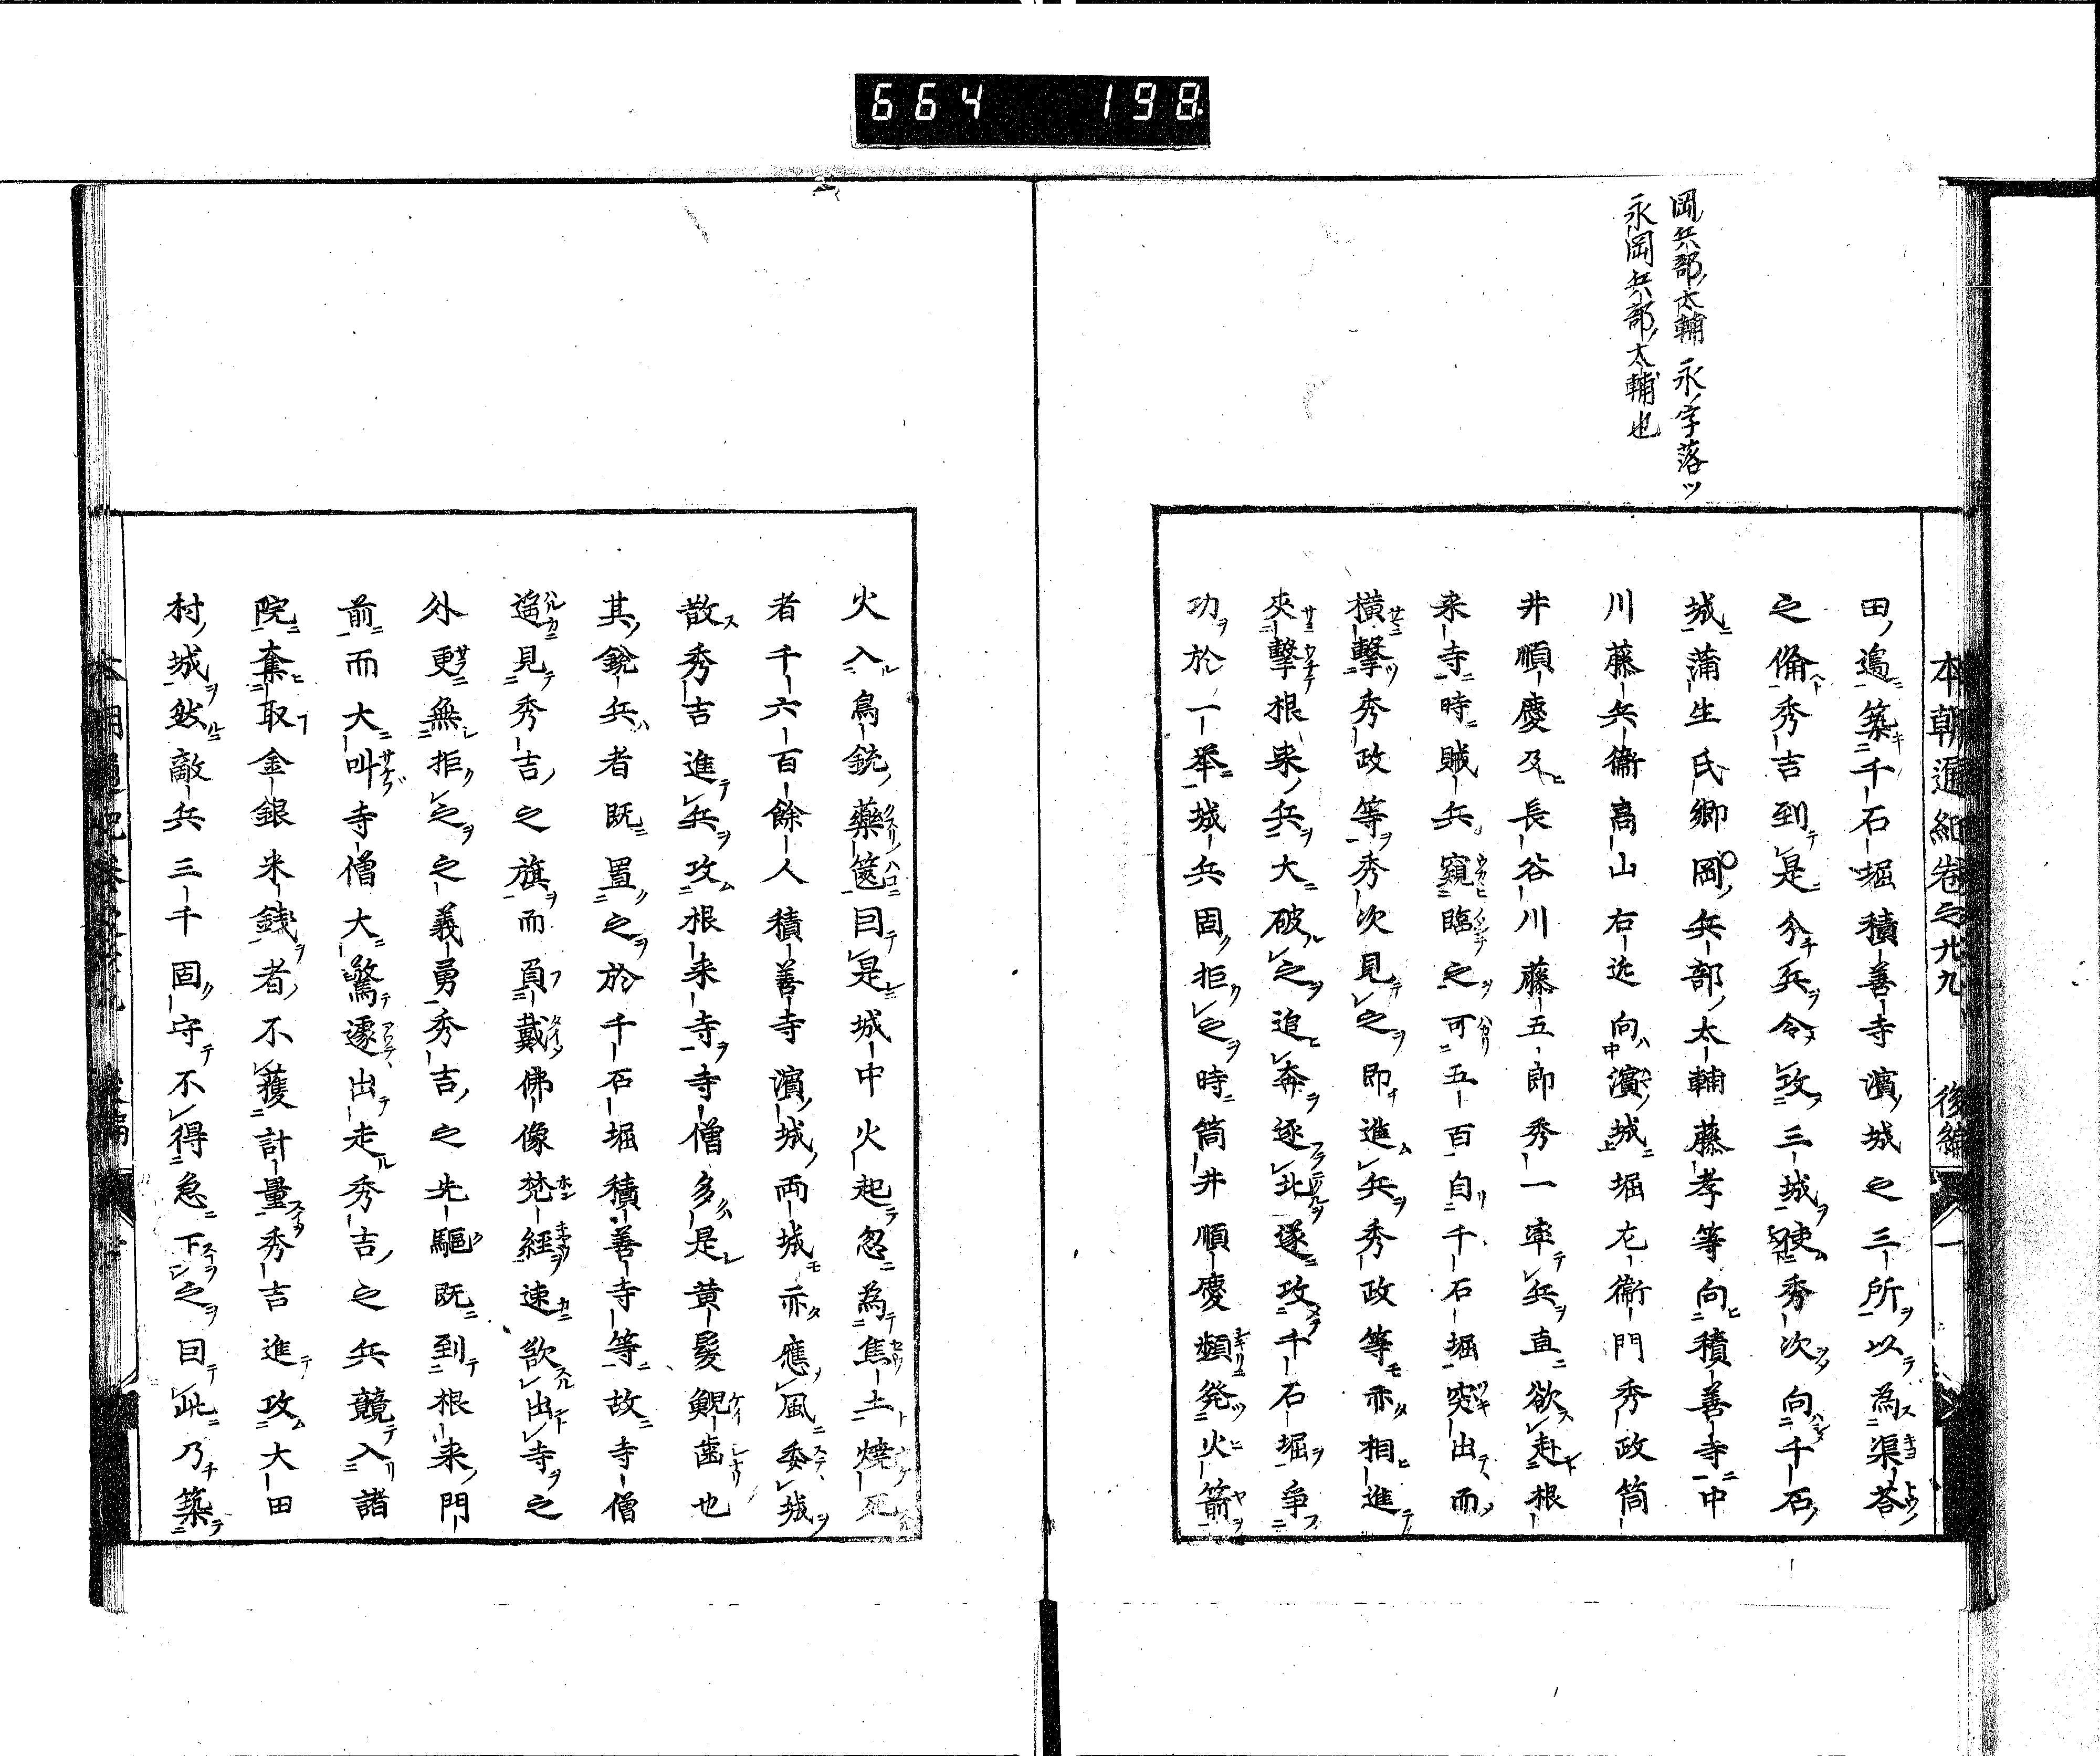 664 198
岡兵部ノ太輔永ノ字落ツ
永岡兵部ノ太輔也
本朝通紀卷之廿九 後編 一
田ノ邉築千石堀積善寺濱ノ城之三所以為渠荅
之偹秀吉到是分兵令攻三城使秀次向千石ノ
城蒲生氏郷岡ノ兵部ノ太輔藤孝等向積善寺中
川藤兵衞高山右近向濱ノ城堀左衞門秀政筒
井順慶及長谷川藤五郎秀一率兵直欲赴根
来寺時賊兵窺臨之可五百自千石堀突出而
横擊秀政等秀次見之即進兵秀政等亦相進
夾擊根来ノ兵大破之追奔逐北遂攻千石堀争
功於一举城兵固拒之時筒井順慶頻発火箭
火入鳥銃ノ藥篋囙是城中火起忽為焦土燒死
者千六百餘人積善寺濱ノ城ノ両城亦應風委城
散秀吉進兵攻根来寺寺僧多是黄髮鯢歯也
其ノ銳兵者既置之於千石堀積善寺等故寺僧
遥見秀吉ノ之旗而負戴佛像梵經速欲出寺之
外更無拒之之義勇秀吉ノ之先驅既到根来ノ門
前而大叫寺僧大驚遽出走秀吉ノ之兵競入諸
院奪取金銀米錢者ノ不獲計量秀吉進攻大田
村ノ城然敵兵三千固守不得急下之囙此乃築